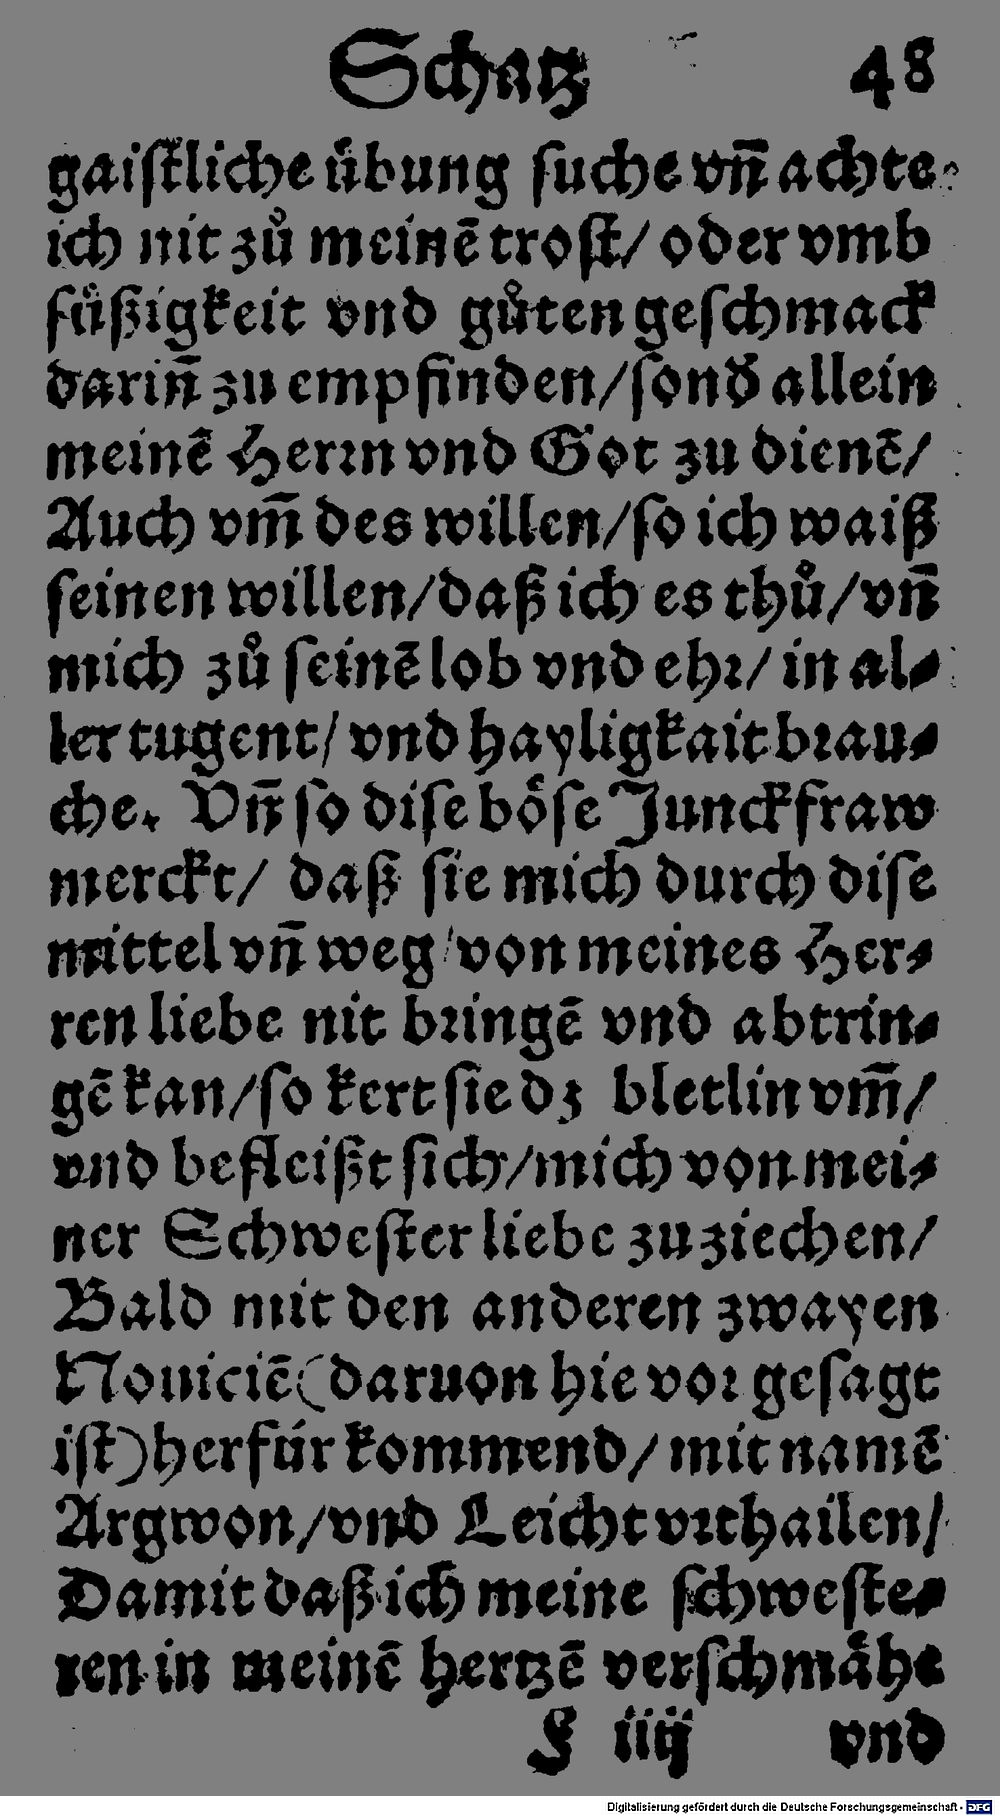 Schatz 48
gaiſtliche uͤbung ſuche vn̄ achte
ich nit zuͦ meinē troſt/ oder vmb
ſuͤßigkeit vnd guͦten geſchmack
darin̄ zu empfinden/ſond̕ allein
meinē Herꝛn vnd Got zu dienē/
Auch vm̄ des willen/ſo ich waiß
ſeinen willen/daß ich es thuͦ/vn̄
mich zuͦ ſeinē lob vnd ehꝛ/ in al⸗
ler tugent/ vnd hayligkait bꝛau⸗
che. Vn̄ ſo diſe boͤſe Junckfraw
merckt/ daß ſie mich durch diſe
mittel vn̄ weg/von meines Her⸗
ren liebe nit bꝛingē vnd abtrin⸗
gē kan/ſo kert ſie dz bletlin vm̄/
vnd befleißt ſich/mich von mei⸗
ner Schweſter liebe zu ziechen/
Bald mit den anderen zwayen
Nouiciē(daruon hie voꝛ geſagt
iſt)herfür kommend/ mit namē
Argwon/vnd Leicht vꝛthailen/
Damit daß ich meine ſchweſte⸗
ren in meinē hertzē verſchmaͤhe
F iiij vnd
Digitalisierung gefördert durch die Deutsche Forschungsgemeinschaft - DFG